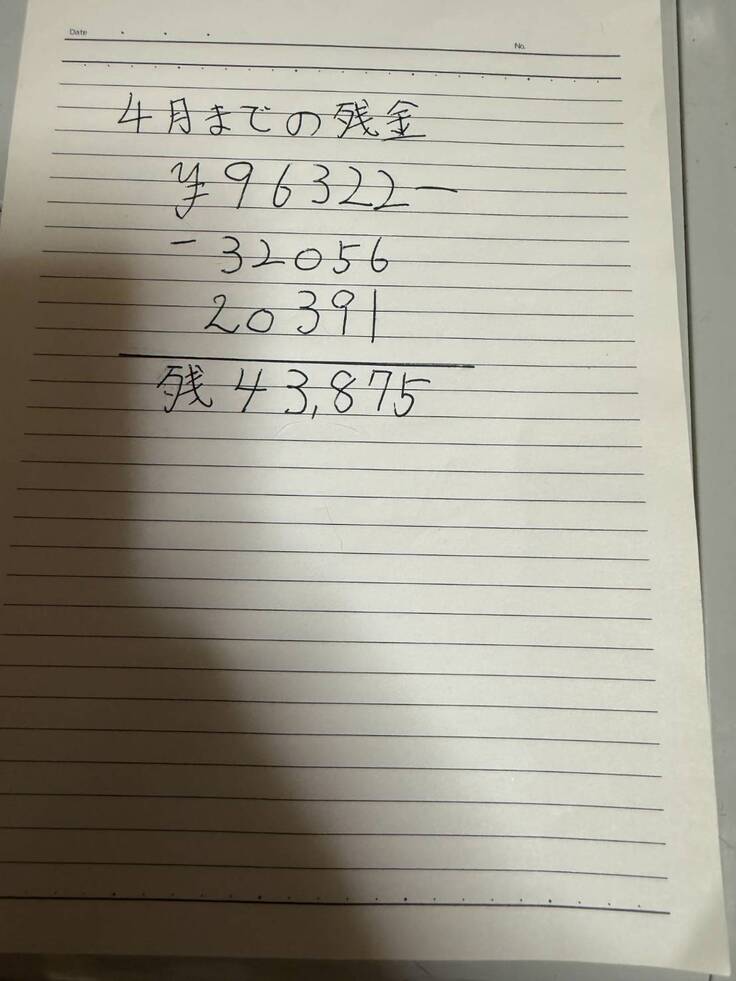 Date
No.
4月までの残金
¥96322ー
-32056
20391
残 43,875